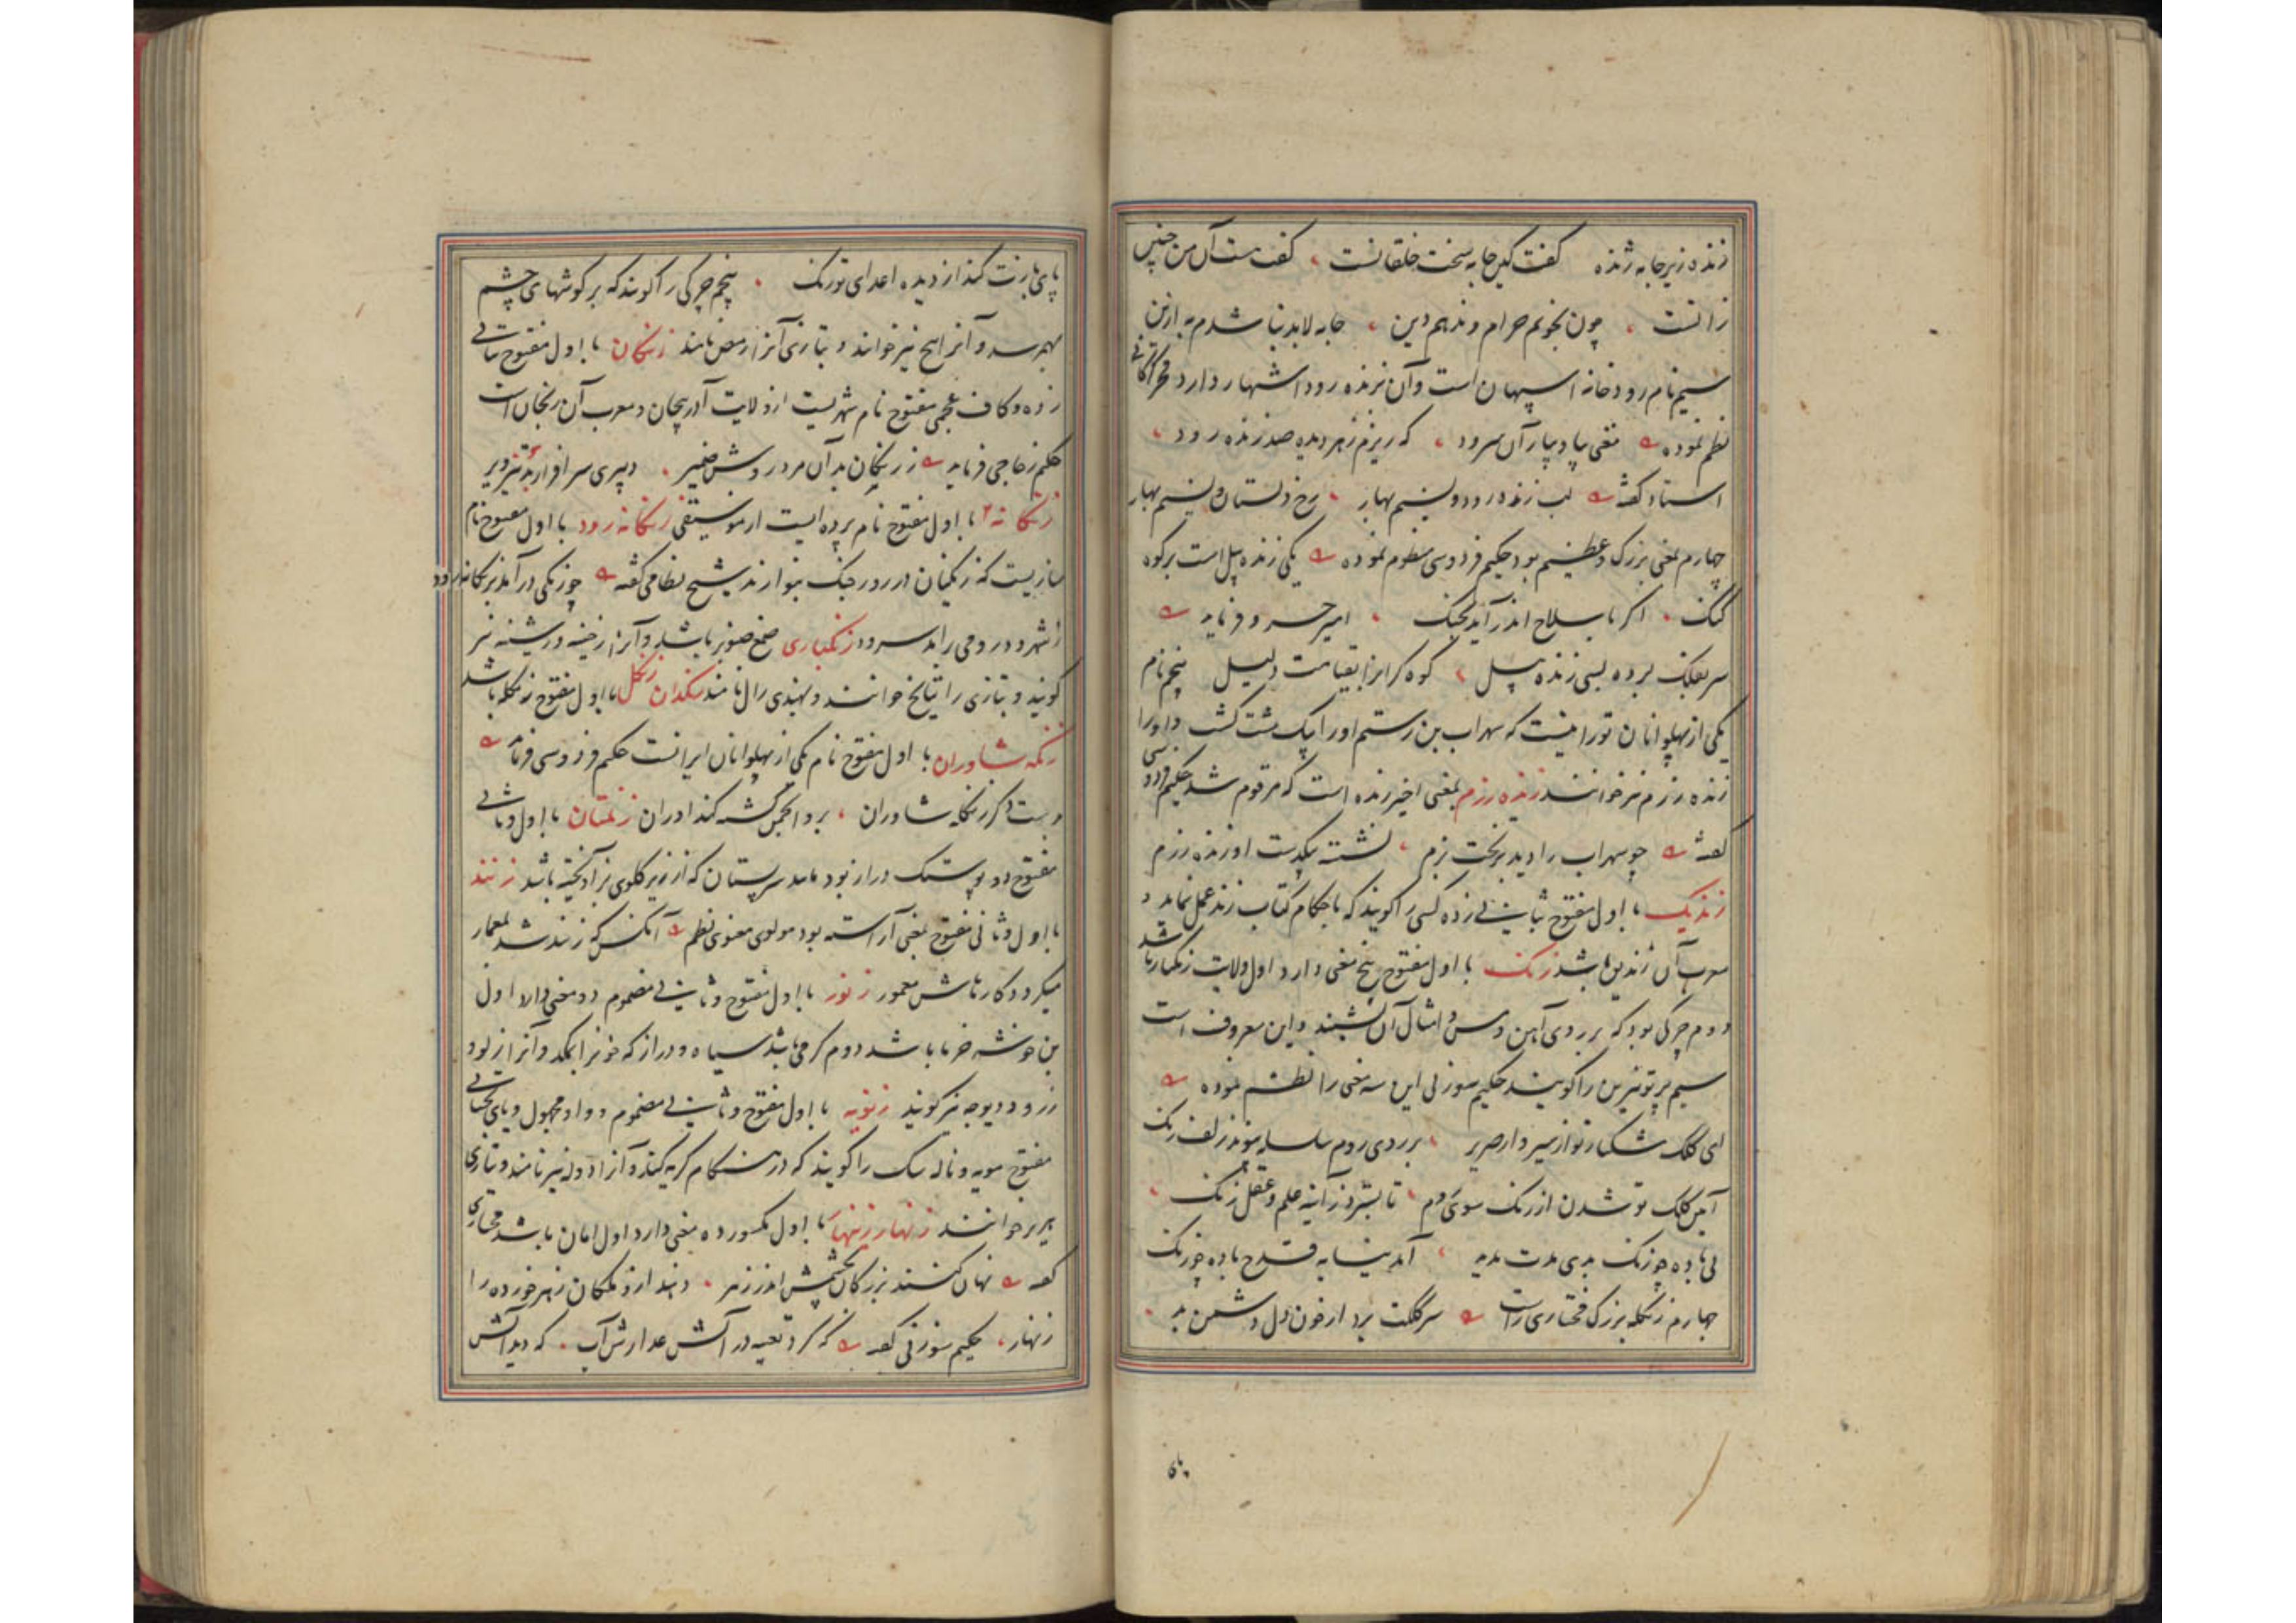 زنده زیر جامه ژنده گفت کین جامه سخت خلقانست گفت هست آن من چنین
زانست چون نجویم حرام و ندهم دین جامه لابد نباشدم به ازین
سیم نام رودخانه اسپهان است و آن بزنده رود اشتهار دارد فخر گرگانی
نظم نموده مغنی بیا و بیار آن سرود که ریزم ز هر دیده صد زنده رود
استاد گفته لب زنده رود و نسیم بهار رخ دلستان و نسیم بهار
چهارم بمعنی بزرک و عظیم بود حکیم فردوسی منظوم نموده یکی زنده پیل است بر کوه
کنک اگر با سلاح اندر آید بجنک امیر خسرو فرماید
سر بفلک برده بسی زنده پیل کوه گران را بقیامت دلیل پنجم نام
یکی از پهلوانان تورانیست که سهراب بن رستم او را بیک مشت کشت و او را
زنده رزم نیز خوانند زنده رزم بمعنی اخیر زنده است که مرقوم شد حکیم فردوسی
گفته چو سهراب را دید بر تخت بزم نشسته بیکدست او زنده رزم
زندیک با اول مفتوح بثانی زده کسی را گویند که باحکام کتاب زند عمل نماید و
معرب آن زندیق باشد زنک با اول مفتوح پنج معنی دارد اول ولایت زنکبار باشد
دوم چرکی بود که بر روی آهن و مس و امثال آن نشیند و این معروف است
سیم پرتو نیرین را گویند حکیم سوزنی این سه معنی را نظم نموده
ای کلک مشکبار تو از میر وار حریر بر روی روم سلسله مویند زلف زنک
آیین کلک تو شدن از زنک سوی روم تا بسترد ز آینه علم و عقل زنک
بی باده چو زنک بدی مدت مدید آمد بشابه قدح باده چو زنک
چهارم زنکله بزرک فخاری راست سر کلکت برد از خون دل دشمن بد
پای
پای بازنت کند از دیده اعدای تو زنک پنجم چرکی را گویند که بر گوشهای چشم
بهم رسد و آنرا پیخ نیز خوانند و بتازی آنرا رمص نامند زنکان با اول مفتوح بثانی
زده و کاف عجمی مفتوح نام شهریست از ولایت آذربیجان و معرب آن زنجان است
حکیم زجاجی فرماید ز زنکان بد آن مرد روشن ضمیر دبیری سرافراز بد تیز ویر
زنکانه با اول مفتوح نام پرده ایست از موسیقی زنکانه رود با اول مفتوح نام
سازیست که زنکیان در روز جنک بنوازند شیخ نظامی گفته چو زنکی درآمد بزنکانه رود
ز شهرود رومی برآمد سرود زنکباری صمغ صنوبر باشد و آنرا زخینه و رشینه نیز
گویند و بتازی راتیانج خوانند و بهندی رال نامند زنکدان زنکل با اول مفتوح زنکله باشد
زنکه شاوران با اول مفتوح نام یکی از پهلوانان ایرانست حکیم فردوسی فرماید
بدست دگر زنکه شاوران بر و انجمن گشته کنداوران زنمتان با اول و ثانی
مفتوح دو پوستک دراز بود مانند سر پستان که از زیر گلوی بز آویخته باشد زنند
با اول و ثانی مفتوح بمعنی آراسته بود مولوی معنوی نظم آنکس که زنند شد بمعمار
میکرد و کارهاش معمور زنور با اول مفتوح و ثانی مضموم دو معنی دارد اول
بن خوشه خرما باشد دوم کرمی باشد سیاه و دراز که خونرا بمکد و آنرا زلو و
زرو و دیوچه نیز گویند زنویه با اول مفتوح و ثانی مضموم و واو مجهول و یای تحتانی
مفتوح مویه و ناله سک را گویند که در هنکام گریه کند و آنرا دوله نیز نامند و بتازی
هریر خوانند زنهار زینهار با اول مکسور ده معنی دارد اول امان باشد مختاری
گفته نهان کنند بزرکان بخشمش اندر زهر دهند از و ملکان زهر خورده را
زنهار حکیم سوزنی گفته که کرد تعبیه در آتش عذارش آب که دید آتش